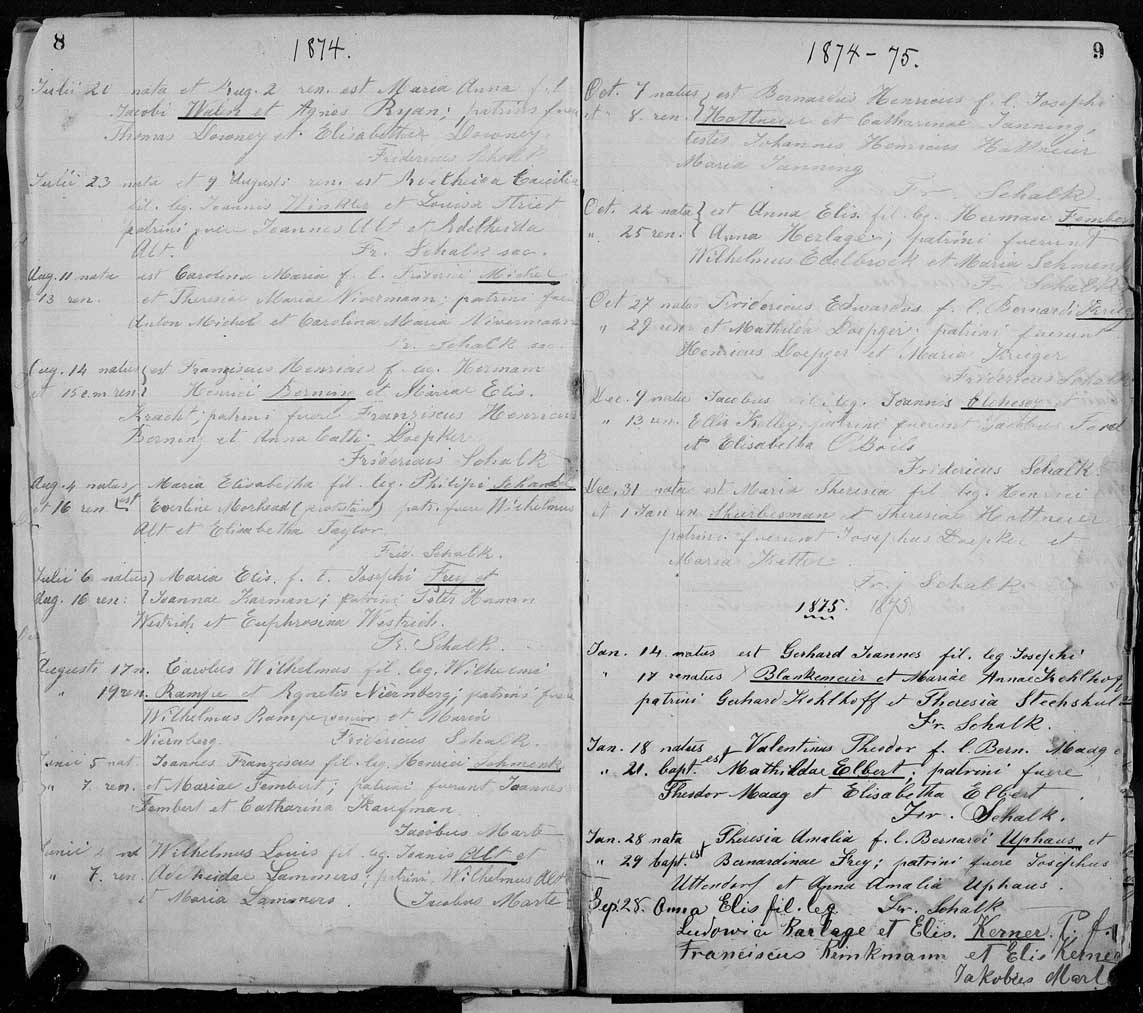 8
1874.
Julii 21 nata et Aug. 2 ren. est Maria Anna f. l.
Jacobi Walsh et Agnes Ryan; patrini fuere
Thomas Downey et Elisabetha Downey.
Fridericus Schalk
Julii 23 nata et 9 Augusti ren. est Caecilia
fil. leg. Joannis Winkler et Louisa
patrini fuere Joannes Alt et Adelheida
Alt. Fr. Schalk sac.
Aug. 11 nata est Carolina Maria f. l. Friderici Michel
13 ren. et Theresiae Mariae Nivermann; patrini fuere
Anton Michel et Carolina Maria Nivermann
Fr. Schalk sac.
Aug. 14 natus est Franziscus Henricus f. leg. Hermann
et 15 e.m. ren. Henrici Berning et Mariae Elis.
Kracht; patrini fuere Franziscus Henricus
Berning et Anna Cath. Doepker.
Fridericus Schalk
Aug. 4 natus Maria Elisabetha fil. leg. Philipi
et 16 ren. est Everline Morhead (protestans) patr. fuere Wilhelmus
Alt et Elisabetha Taylor.
Frid. Schalk.
Julii 6 natus Maria Elis. f. l. Josephi Frey et
Aug. 16 ren: Joannae Karman; patrini Peter Herman
Westrich et Euphrosina Westrich.
Fr. Schalk.
Augusti 17 n. Carolus Wilhelmus fil. leg. Wilhelmi
" 19 ren. Rampe et Agnetis Niernberg; patrini fuere
Wilhelmus Rampe senior et Maria
Niernberg. Fridericus Schalk.
Junii 5 nat. Joannes Franziscus fil. leg. Henrici Schmenk
" 7. ren. et Mariae Fembert; patrini fuerunt Joannes
Fembert et Catharina Kaufman.
Jacobus Marte
Junii 2 nat Wilhelmus Louis fil. leg. Joanis Alt et
" 7. ren. Adelheidae Lammers; patrini Wilhelmus Alt
et Maria Lammers. Jacobus Marte
9
1874-75.
Oct. 7 natus est Bernardus Henricus f. l. Josephi
et " 8. ren. Hottmeier et Catharinae Janning,
testes Johannes Henricus Hottmeier
Maria Janning
Fr. Schalk.
Oct. 22 nata est Anna Elis. fil. leg. Herman Fembert
" 25 ren. Anna Herlage; patrini fuerunt
Wilhelmus Edelbrock et Maria Schmenk
Fr. Schalk
Oct 27 natus Fridericus Edwardus f. l. Bernardi
" 29 ren. et Mathilda Doepger. patrini fuerunt
Henricus Doepger et Maria Kruger
Fridericus Schalk
Dec. 9 natus Jacobus fil. leg. Joannis et
" 13. ren. Ellis Kelley, patrini fuerunt Jacobus Ford
et Elisabetha O'Boils
Fridericus Schalk.
Dec. 31 nata est Maria Theresia fil. leg. Henrici
et 1 Jan ren. Skurbesman et Theresiae Hottmeier
patrini fuerunt Josephus Doepker et
Maria Katter
Fr. Schalk
1875. 1875
Jan. 14 natus est Gerhard Joannes fil. leg Josephi
" 17 renatus Blankemeier et Mariae Annae Kohlhoff
patrini Gerhard Kohlhoff et Theresia Stechschulte
Fr. Schalk.
Jan. 18 natus Valentinus Theodor f. l. Bern. Maag et
" 21. bapt. est Mathildae Elbert; patrini fuere
Theodor Maag et Elisabetha Elbert.
Fr. Schalk.
Jan. 28 nata Theresia Amalia f. l. Bernardi Uphaus et
" 29 bapt. est Bernardinae Frey; patrini fuere Josephus
Uttendorf et Anna Amalia Uphaus.
Sep. 28. Anna Elis fil. leg Fr. Schalk
Ludowici Karlage et Elis. Kerner. P. f.
Franciscus Rinkmann et Elis Kerner
Jakobus Marte